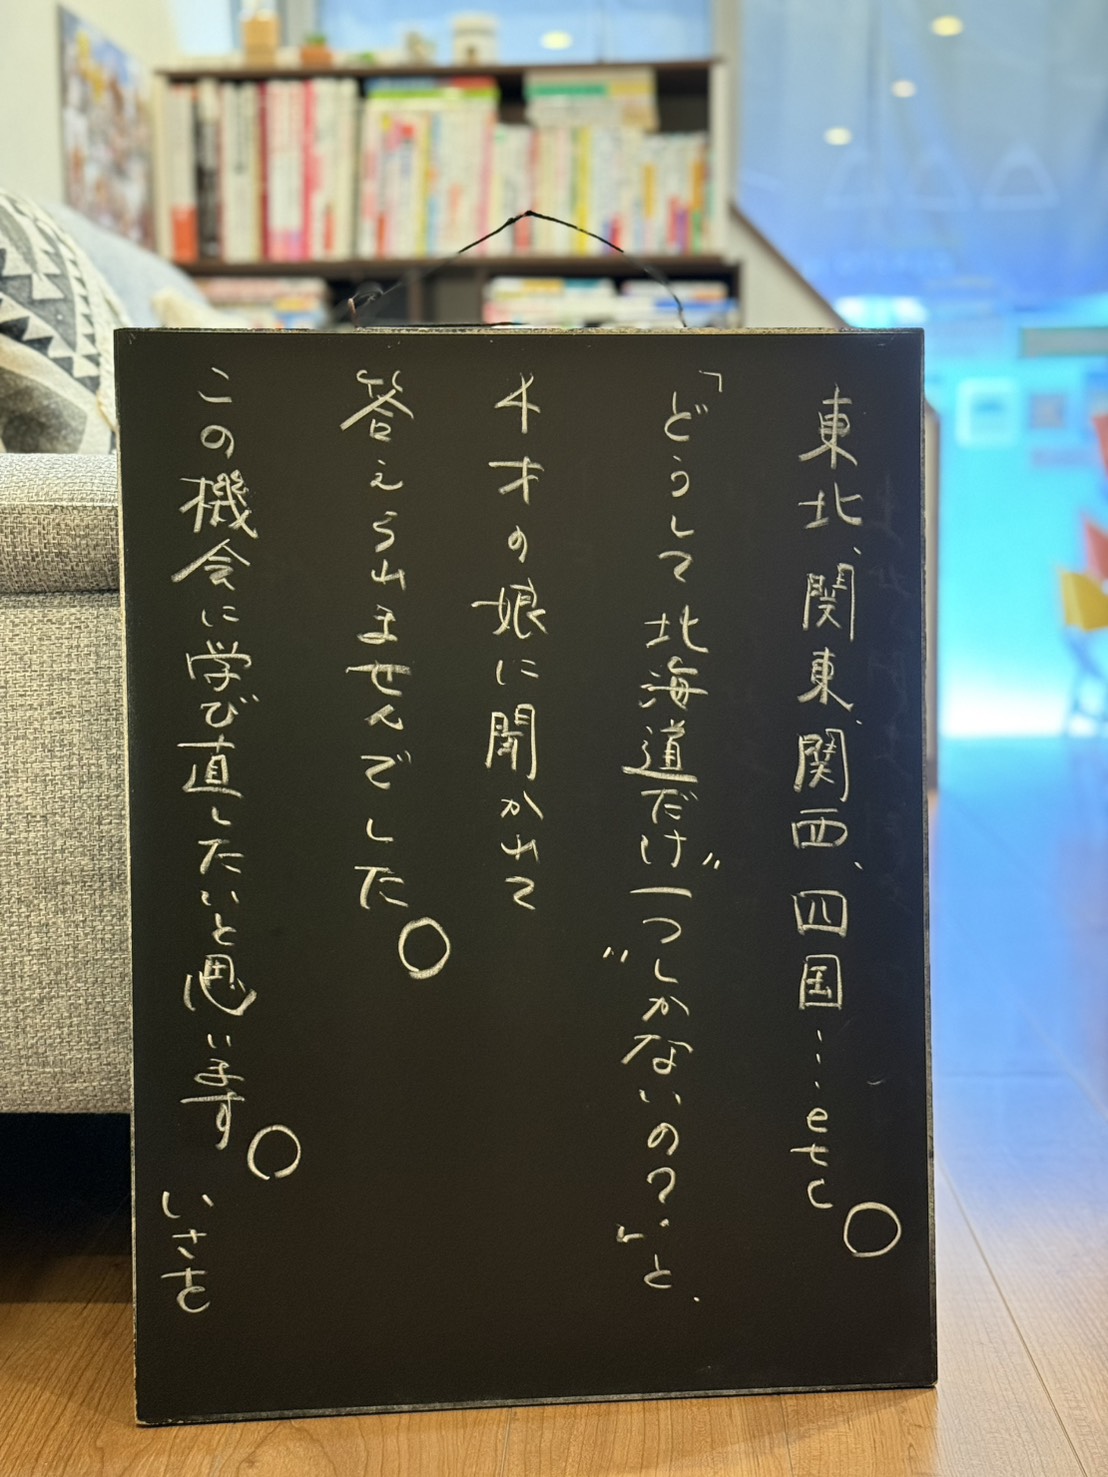 東北、関東、関西、四国・・・etc。
「どうして北海道だけ"一つ"しかないの?」と、
4才の娘に聞かれて
答えられませんでした。
この機会に学び直したいと思います。 いさを